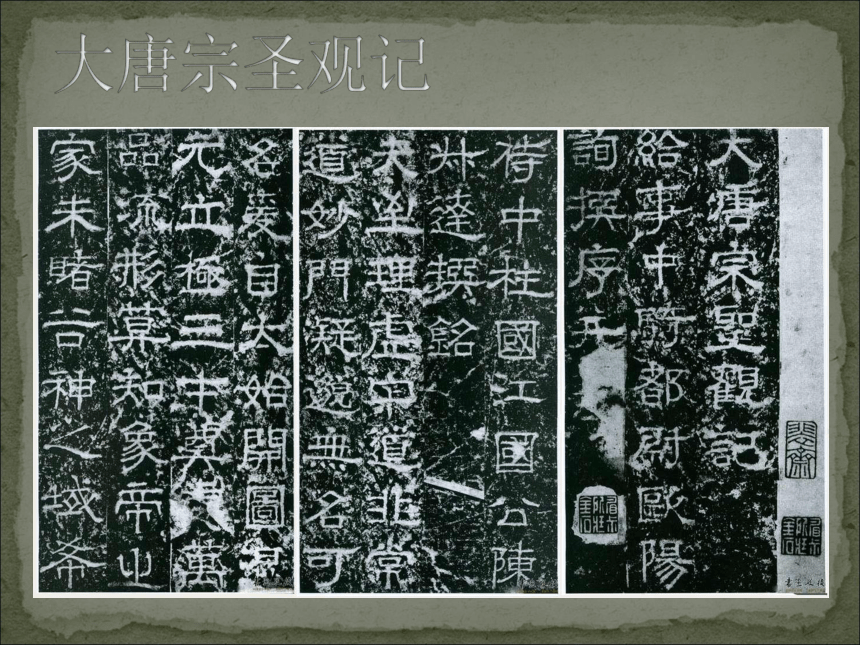 大唐宗圣观记
大唐宗聖觀記
給事中騎都尉歐陽
詢撰序并
侍中柱國江國公陳
叔達撰銘
夫至理虛中道非常
道妙門疑邈無名可
名爰自太始開圖混
元立極三中奠萬
品流形莫知象帝之
家未睹谷神之域希